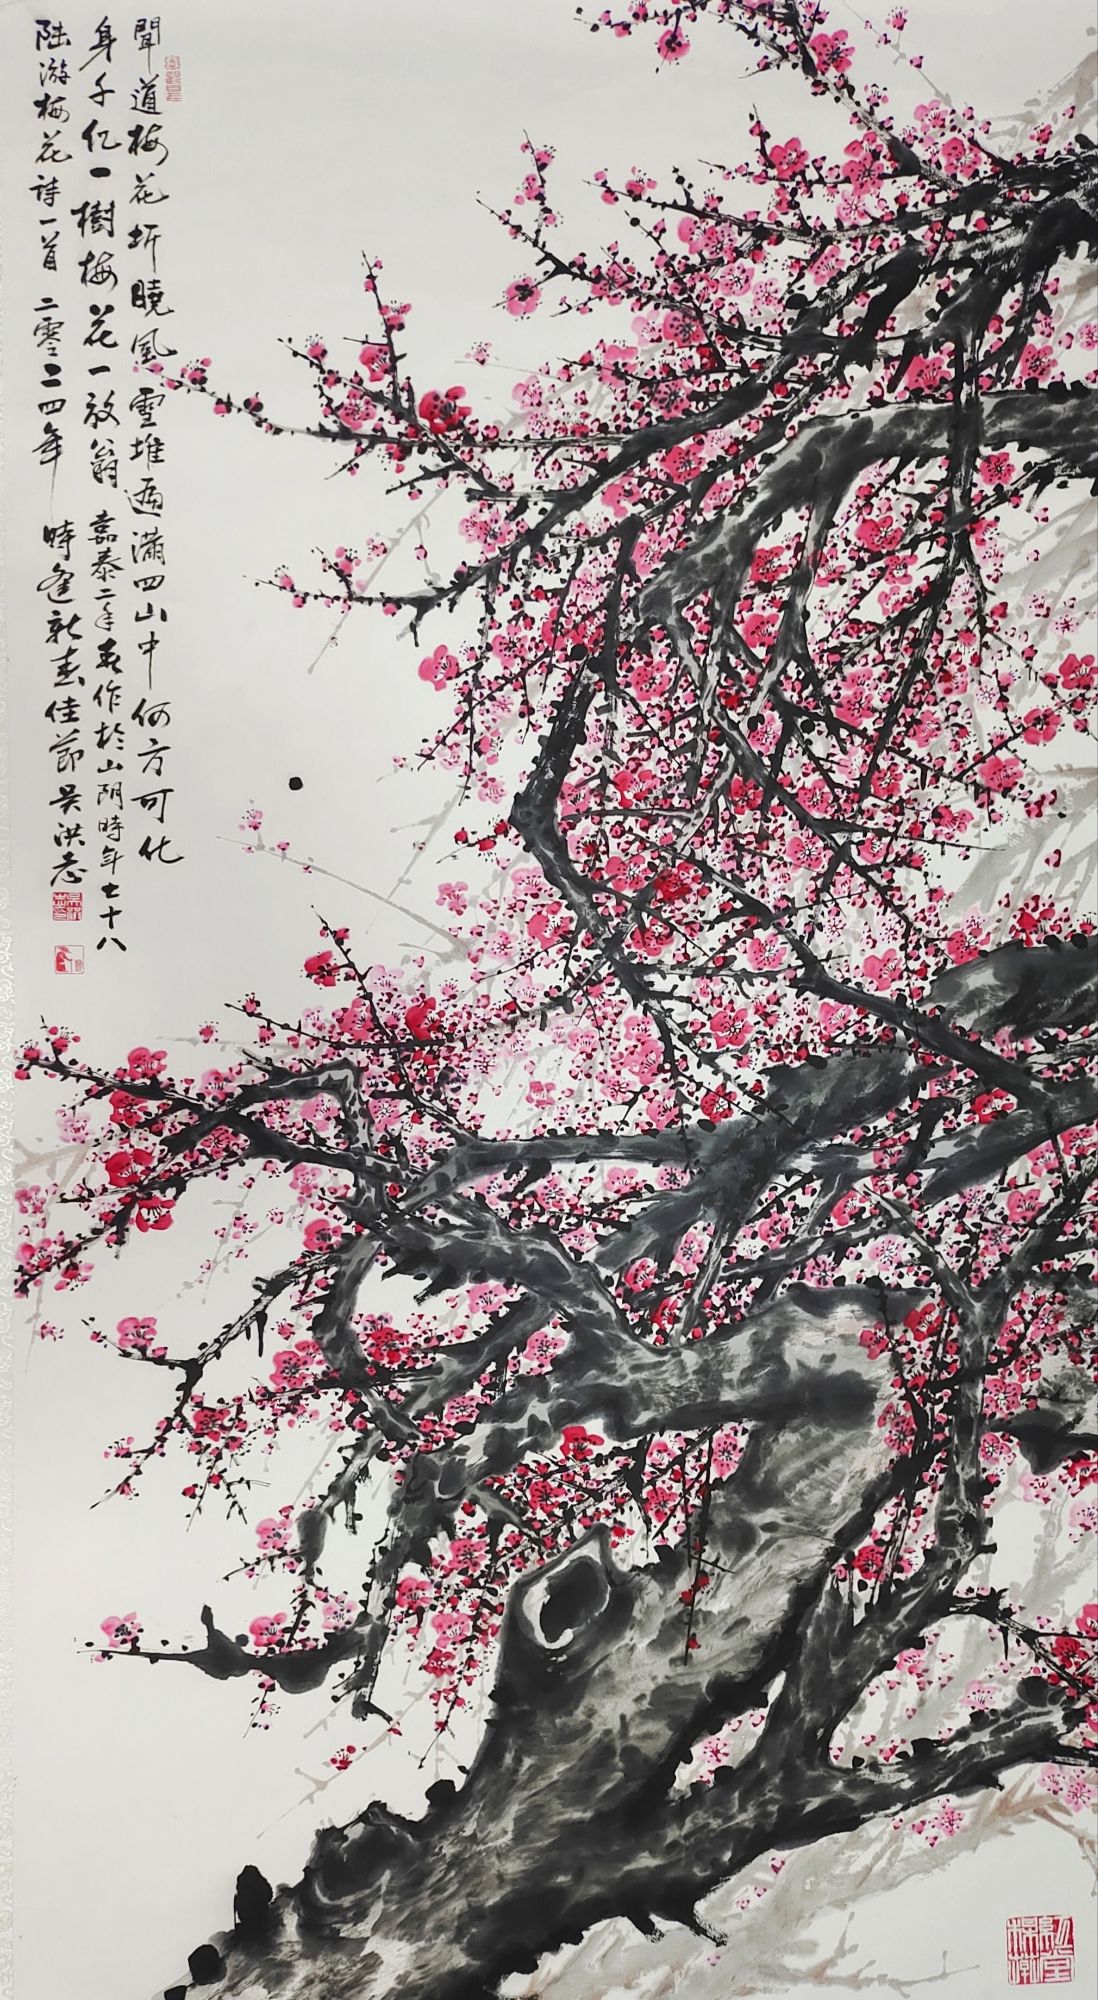 聞道梅花坼曉風雪堆遍滿四山中何方可化
身千億一樹梅花一放翁嘉泰二年春作於山阴時年七十八
陆游梅花诗一首 二零二四年 時逢新春佳節吴洪志